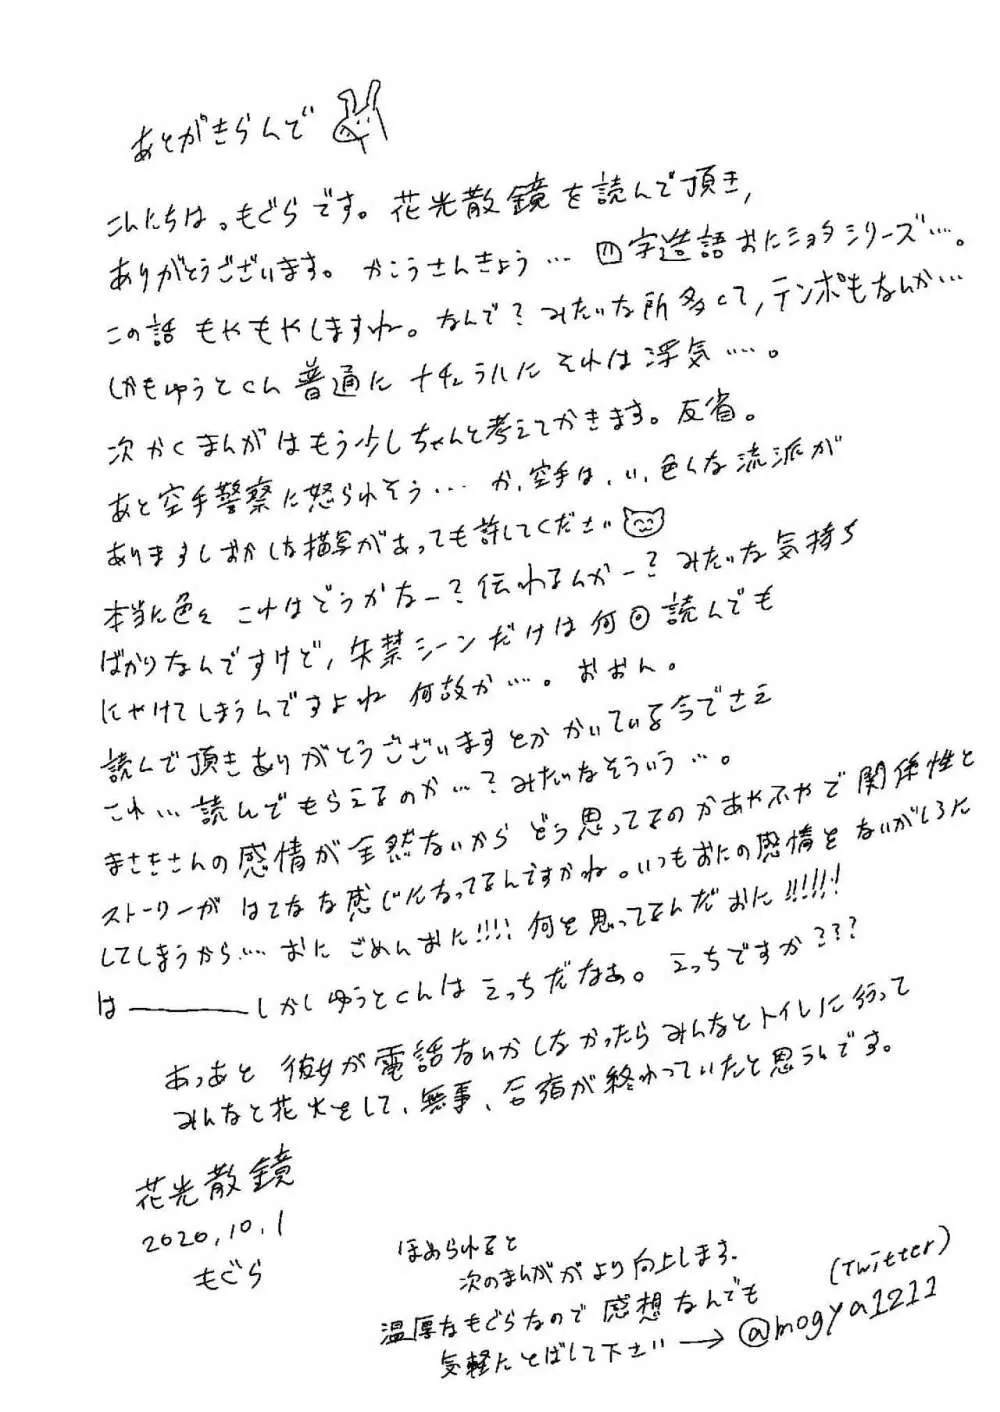 あとがきらんど
こんにちは。もぐらです。花光散鏡を読んで頂き,
ありがとうございます。かこうさんきょう… 四字造語おにショタシリーズ…。
この話 もやもやしますね。なんで?みたいな所多くて,テンポもなんか…
しかもゆうとくん 普通に ナチュラルに それは浮気…。
次かくまんがはもう少しちゃんと考えてかきます。反省。
あと空手警察に怒られそう… か,空手は,い,色んな流派が
ありますしおかしな描写があっても許してください
本当に色々 これはどうかなー?伝わるんかー?みたいな気持ち
ばかりなんですけど,失禁シーンだけは何回読んでも
にやけてしまうんですよね 何故か…。おおん。
読んで頂きありがとうございますとか かいている今でさえ
これ…読んでもらえるのか…?みたいなそういう…。
まさきさんの感情が全然ないから どう思ってるのかあやふやで関係性と
ストーリーが はてなな感じになってるんですかね。いつもおにの感情を ないがしろに
してしまうから… おに ごめんおに!!!! 何を思ってるんだおに!!!!!
は――しかしゆうとくんはえっちだなぁ。えっちですか???
あっあと 彼女が電話ないかしなかったらみんなとトイレに行って
みんなと花火をして、無事、合宿が終わっていたと思うんです。
花光散鏡
2020,10,1
もぐら
ほめられると
次のまんががより向上します.
温厚なもぐらなので 感想なんでも
気軽にとばして下さい → @mogya1211
(Twitter)